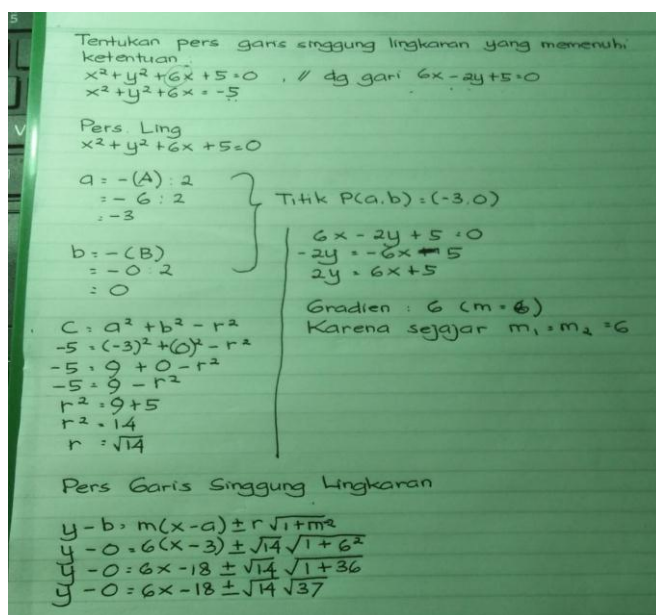 Tentukan pers garis singgung lingkaran yang memenuhi
ketentuan.
x² + y² + 6x + 5 = 0 , // dg gari 6x - 2y + 5 = 0
x² + y² + 6x = -5
Pers. Ling
x² + y² + 6x + 5 = 0
a = -(A) : 2
= - 6 : 2
= -3
b = -(B)
= -0 : 2
= 0
Titik P(a,b) = (-3,0)
C = a² + b² - r²
-5 = (-3)² + (0)² - r²
-5 = 9 + 0 - r²
-5 = 9 - r²
r² = 9 + 5
r² = 14
r = √14
6x - 2y + 5 = 0
-2y = -6x - 5
2y = 6x + 5
Gradien : 6 (m = 6)
Karena sejajar m₁ = m₂ = 6
Pers Garis Singgung Lingkaran
y - b = m(x - a) ± r √1+m²
y - 0 = 6(x - 3) ± √14 √1 + 6²
y - 0 = 6x - 18 ± √14 √1 + 36
y - 0 = 6x - 18 ± √14 √37